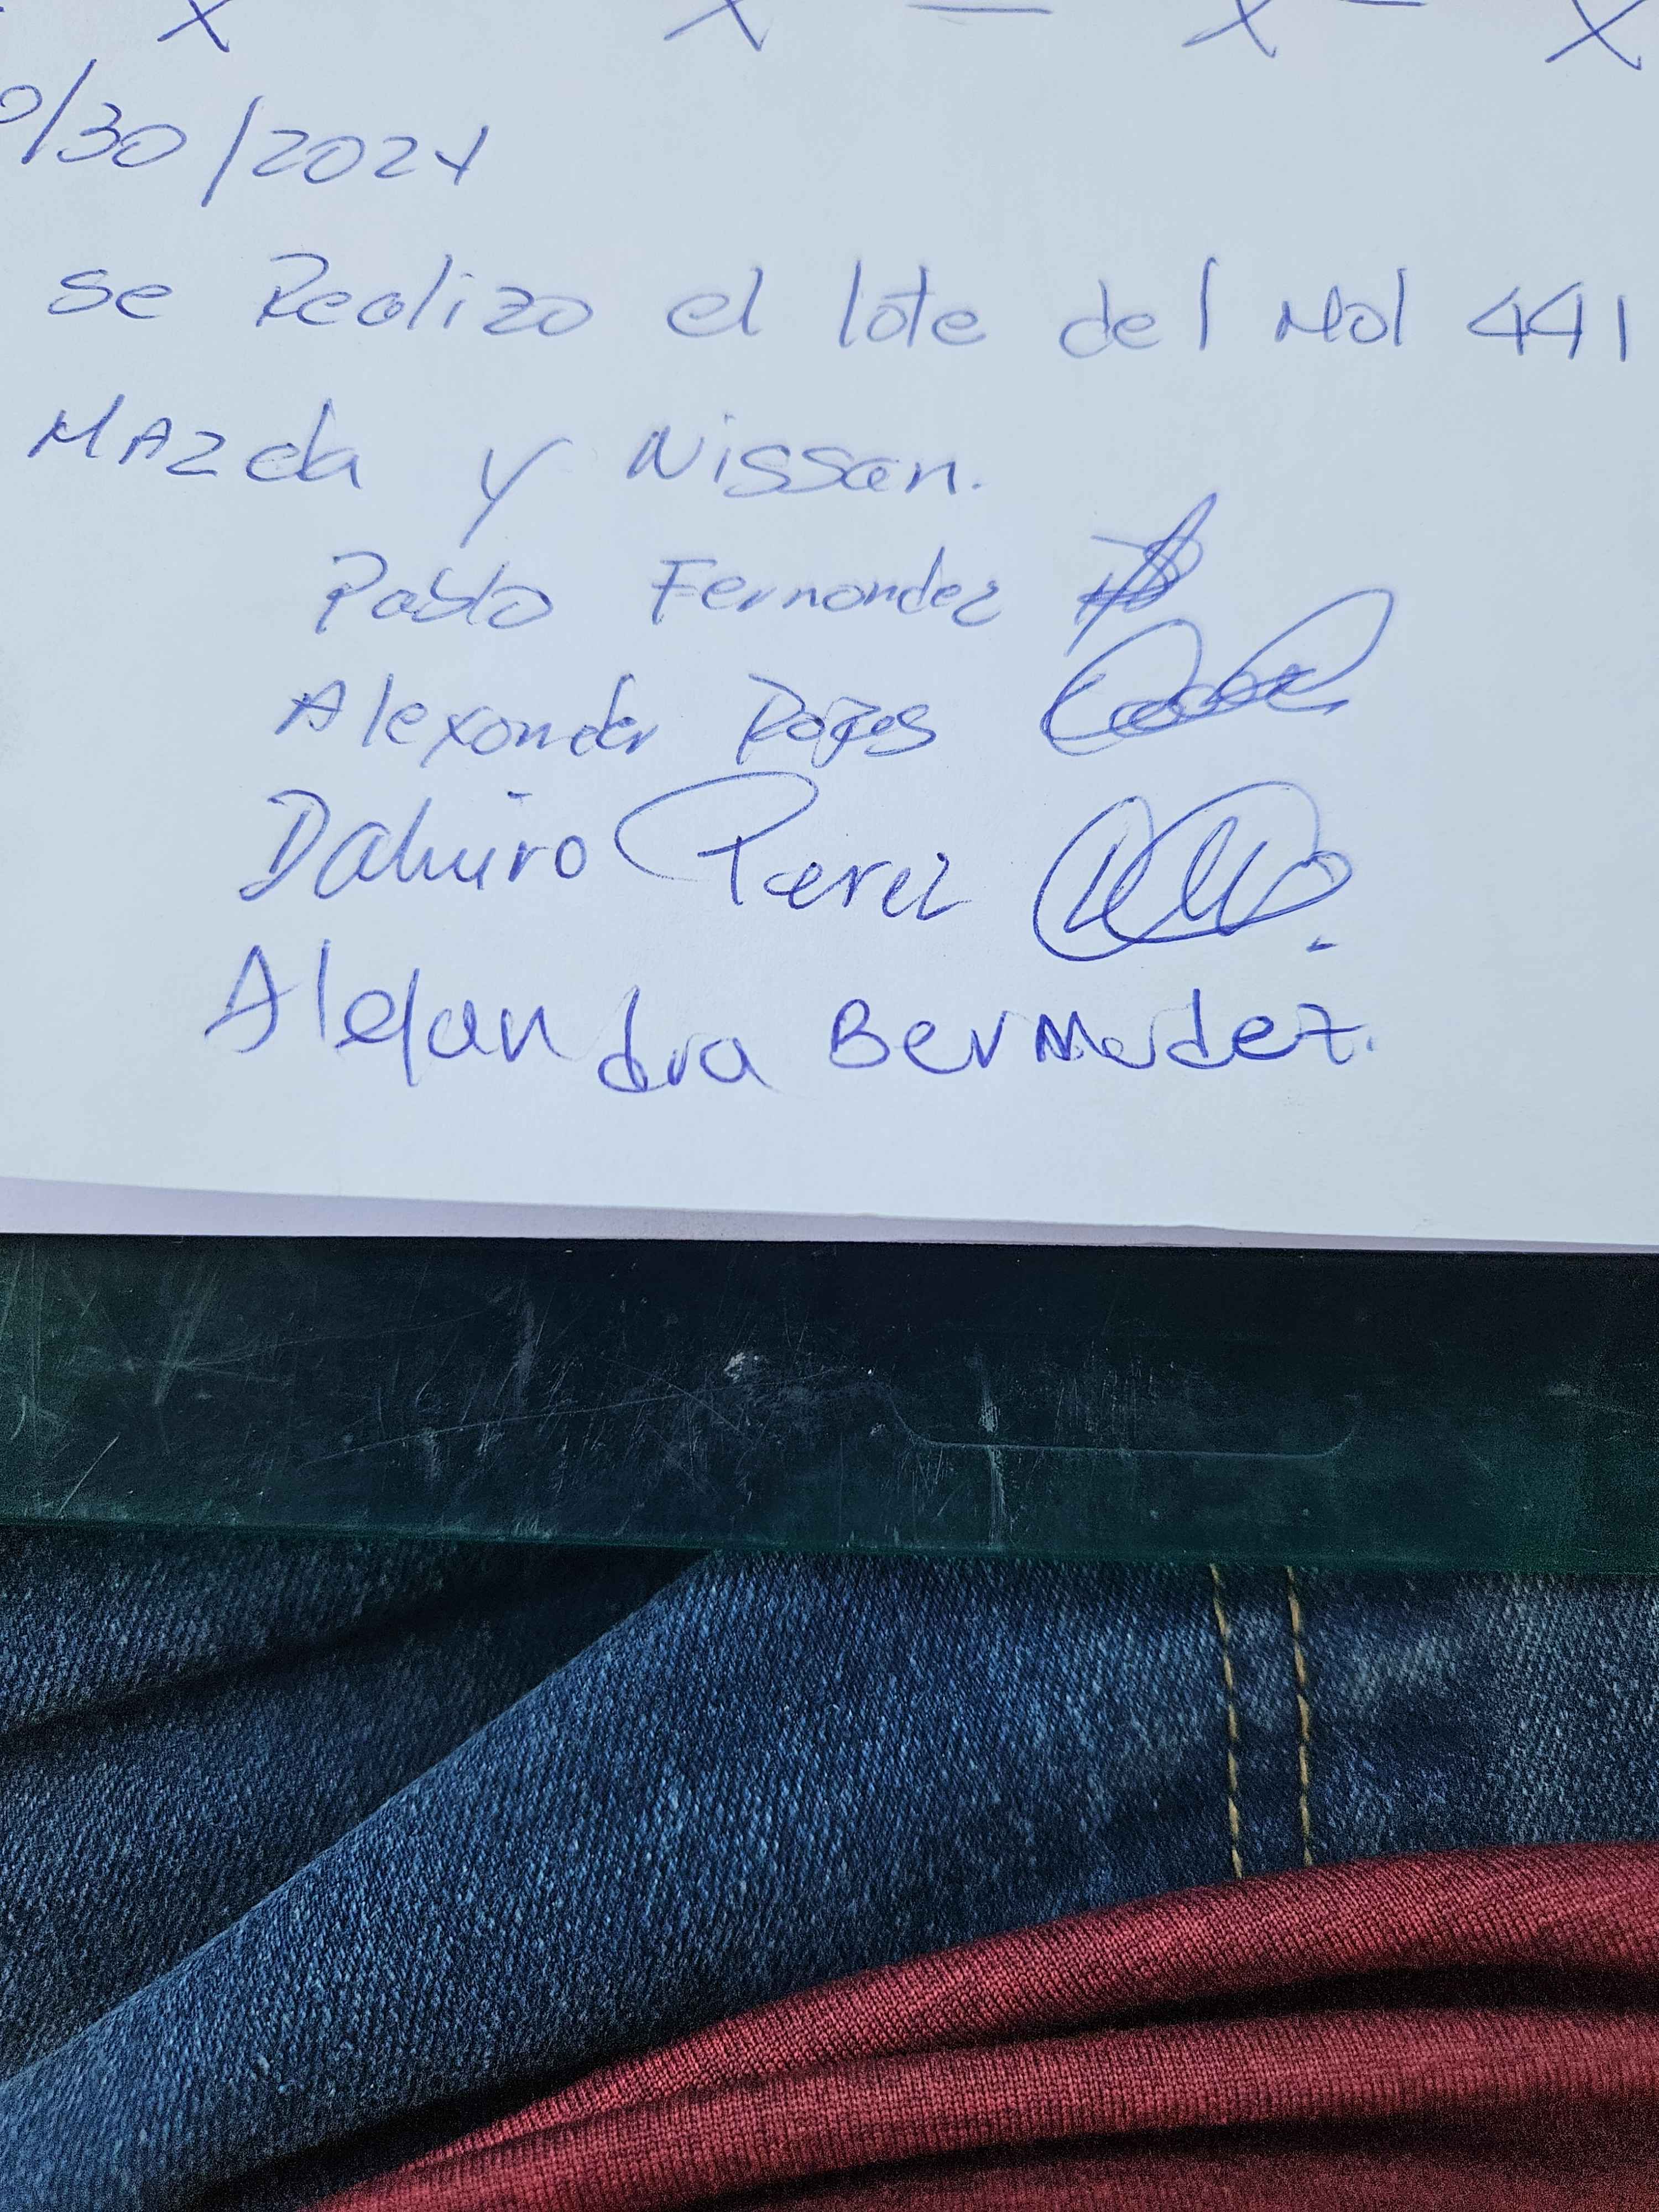 x x — x — x
0/30/2024
se Realizo el lote del Mol 441
MAZda y Nissan.
Pablo Fernandez
Alexander Rojas
Perez
Alejandra BerMudez.